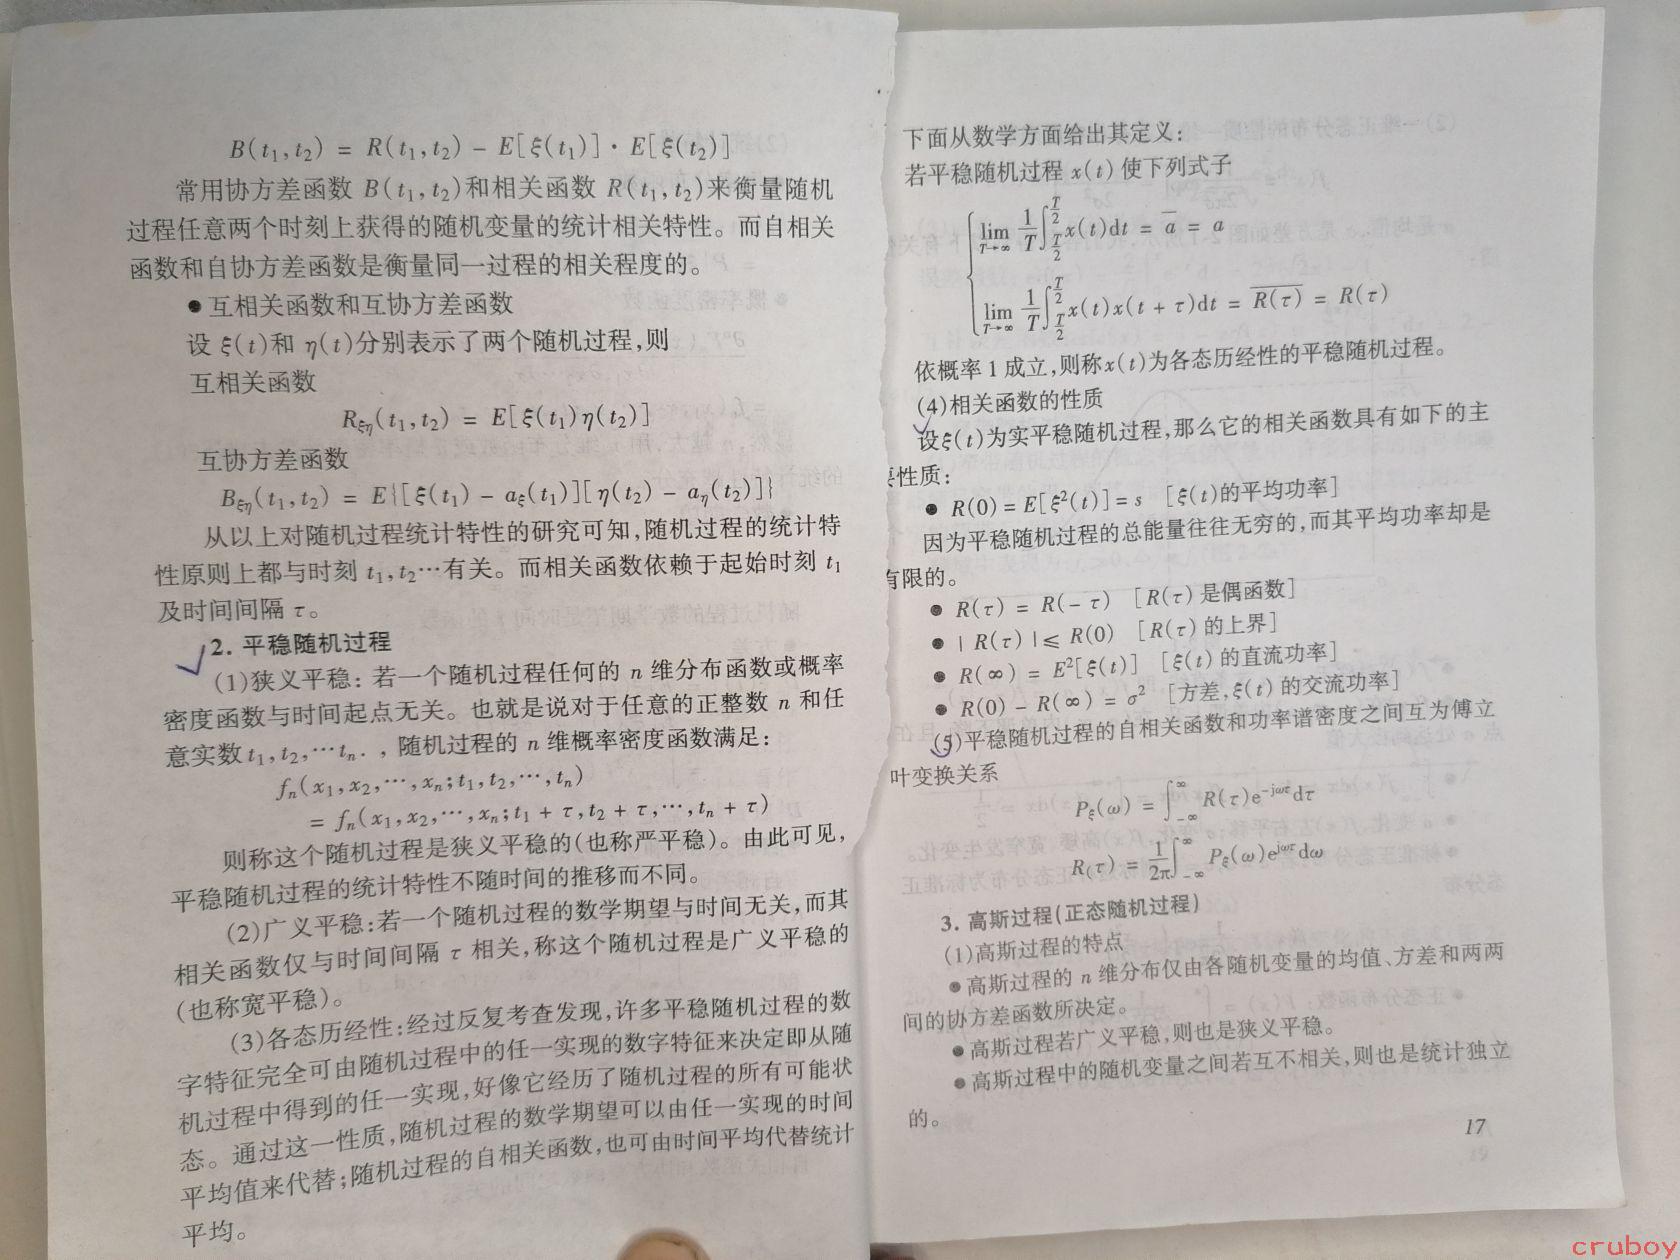 B(t₁,t₂) = R(t₁,t₂) − E[ξ(t₁)]·E[ξ(t₂)]
常用协方差函数 B(t₁,t₂)和相关函数 R(t₁,t₂)来衡量随机
过程任意两个时刻上获得的随机变量的统计相关特性。而自相关
函数和自协方差函数是衡量同一过程的相关程度的。
●互相关函数和互协方差函数
设 ξ(t)和 η(t)分别表示了两个随机过程,则
互相关函数
R_ξη(t₁,t₂) = E[ξ(t₁)η(t₂)]
互协方差函数
B_ξη(t₁,t₂) = E{[ξ(t₁) − a_ξ(t₁)][η(t₂) − a_η(t₂)]}
从以上对随机过程统计特性的研究可知,随机过程的统计特
性原则上都与时刻 t₁,t₂…有关。而相关函数依赖于起始时刻 t₁
及时间间隔 τ。
2. 平稳随机过程
(1)狭义平稳: 若一个随机过程任何的 n 维分布函数或概率
密度函数与时间起点无关。也就是说对于任意的正整数 n 和任
意实数 t₁,t₂,…tₙ. , 随机过程的 n 维概率密度函数满足:
fₙ(x₁,x₂,…,xₙ;t₁,t₂,…,tₙ)
= fₙ(x₁,x₂,…,xₙ;t₁ + τ,t₂ + τ,…,tₙ + τ)
则称这个随机过程是狭义平稳的(也称严平稳)。由此可见,
平稳随机过程的统计特性不随时间的推移而不同。
(2)广义平稳:若一个随机过程的数学期望与时间无关,而其
相关函数仅与时间间隔 τ 相关,称这个随机过程是广义平稳的
(也称宽平稳)。
(3)各态历经性:经过反复考查发现,许多平稳随机过程的数
字特征完全可由随机过程中的任一实现的数字特征来决定即从随
机过程中得到的任一实现,好像它经历了随机过程的所有可能状
态。通过这一性质,随机过程的数学期望可以由任一实现的时间
平均值来代替;随机过程的自相关函数,也可由时间平均代替统计
平均。
下面从数学方面给出其定义:
若平稳随机过程 x(t) 使下列式子
lim_{T→∞} 1/T ∫_{T/2}^{T/2} x(t)dt = a̅ = a
lim_{T→∞} 1/T ∫_{T/2}^{T/2} x(t)x(t + τ)dt = \overline{R(τ)} = R(τ)
依概率 1 成立,则称x(t)为各态历经性的平稳随机过程。
(4)相关函数的性质
设ξ(t)为实平稳随机过程,那么它的相关函数具有如下的主
要性质:
● R(0) = E[ξ²(t)] = s [ξ(t)的平均功率]
因为平稳随机过程的总能量往往无穷的,而其平均功率却是
有限的。
● R(τ) = R(− τ) [R(τ) 是偶函数]
● | R(τ) |⩽ R(0) [R(τ) 的上界]
● R(∞) = E²[ξ(t)] [ξ(t) 的直流功率]
● R(0) − R(∞) = σ² [方差,ξ(t) 的交流功率]
(5)平稳随机过程的自相关函数和功率谱密度之间互为傅立
叶变换关系
P_ξ(ω) = ∫_{−∞}^{∞} R(τ)e^{−jωτ}dτ
R(τ) = 1/2π ∫_{−∞}^{∞} P_ξ(ω)e^{jωτ}dω
3. 高斯过程(正态随机过程)
(1)高斯过程的特点
●高斯过程的 n 维分布仅由各随机变量的均值、方差和两两
间的协方差函数所决定。
●高斯过程若广义平稳,则也是狭义平稳。
●高斯过程中的随机变量之间若互不相关,则也是统计独立
的。
17
cruboy